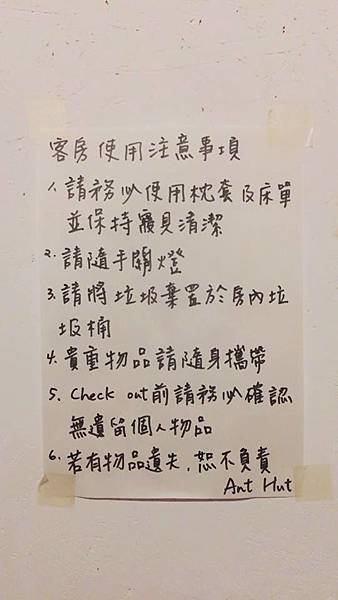 客房使用注意事項
1. 請務必使用枕套及床單
並保持寢具清潔
2. 請隨手關燈
3. 請將垃圾棄置於房內垃
圾桶
4. 貴重物品請隨身攜帶
5. Check out前請務必確認
無遺留個人物品
6. 若有物品遺失，恕不負責
Ant Hut